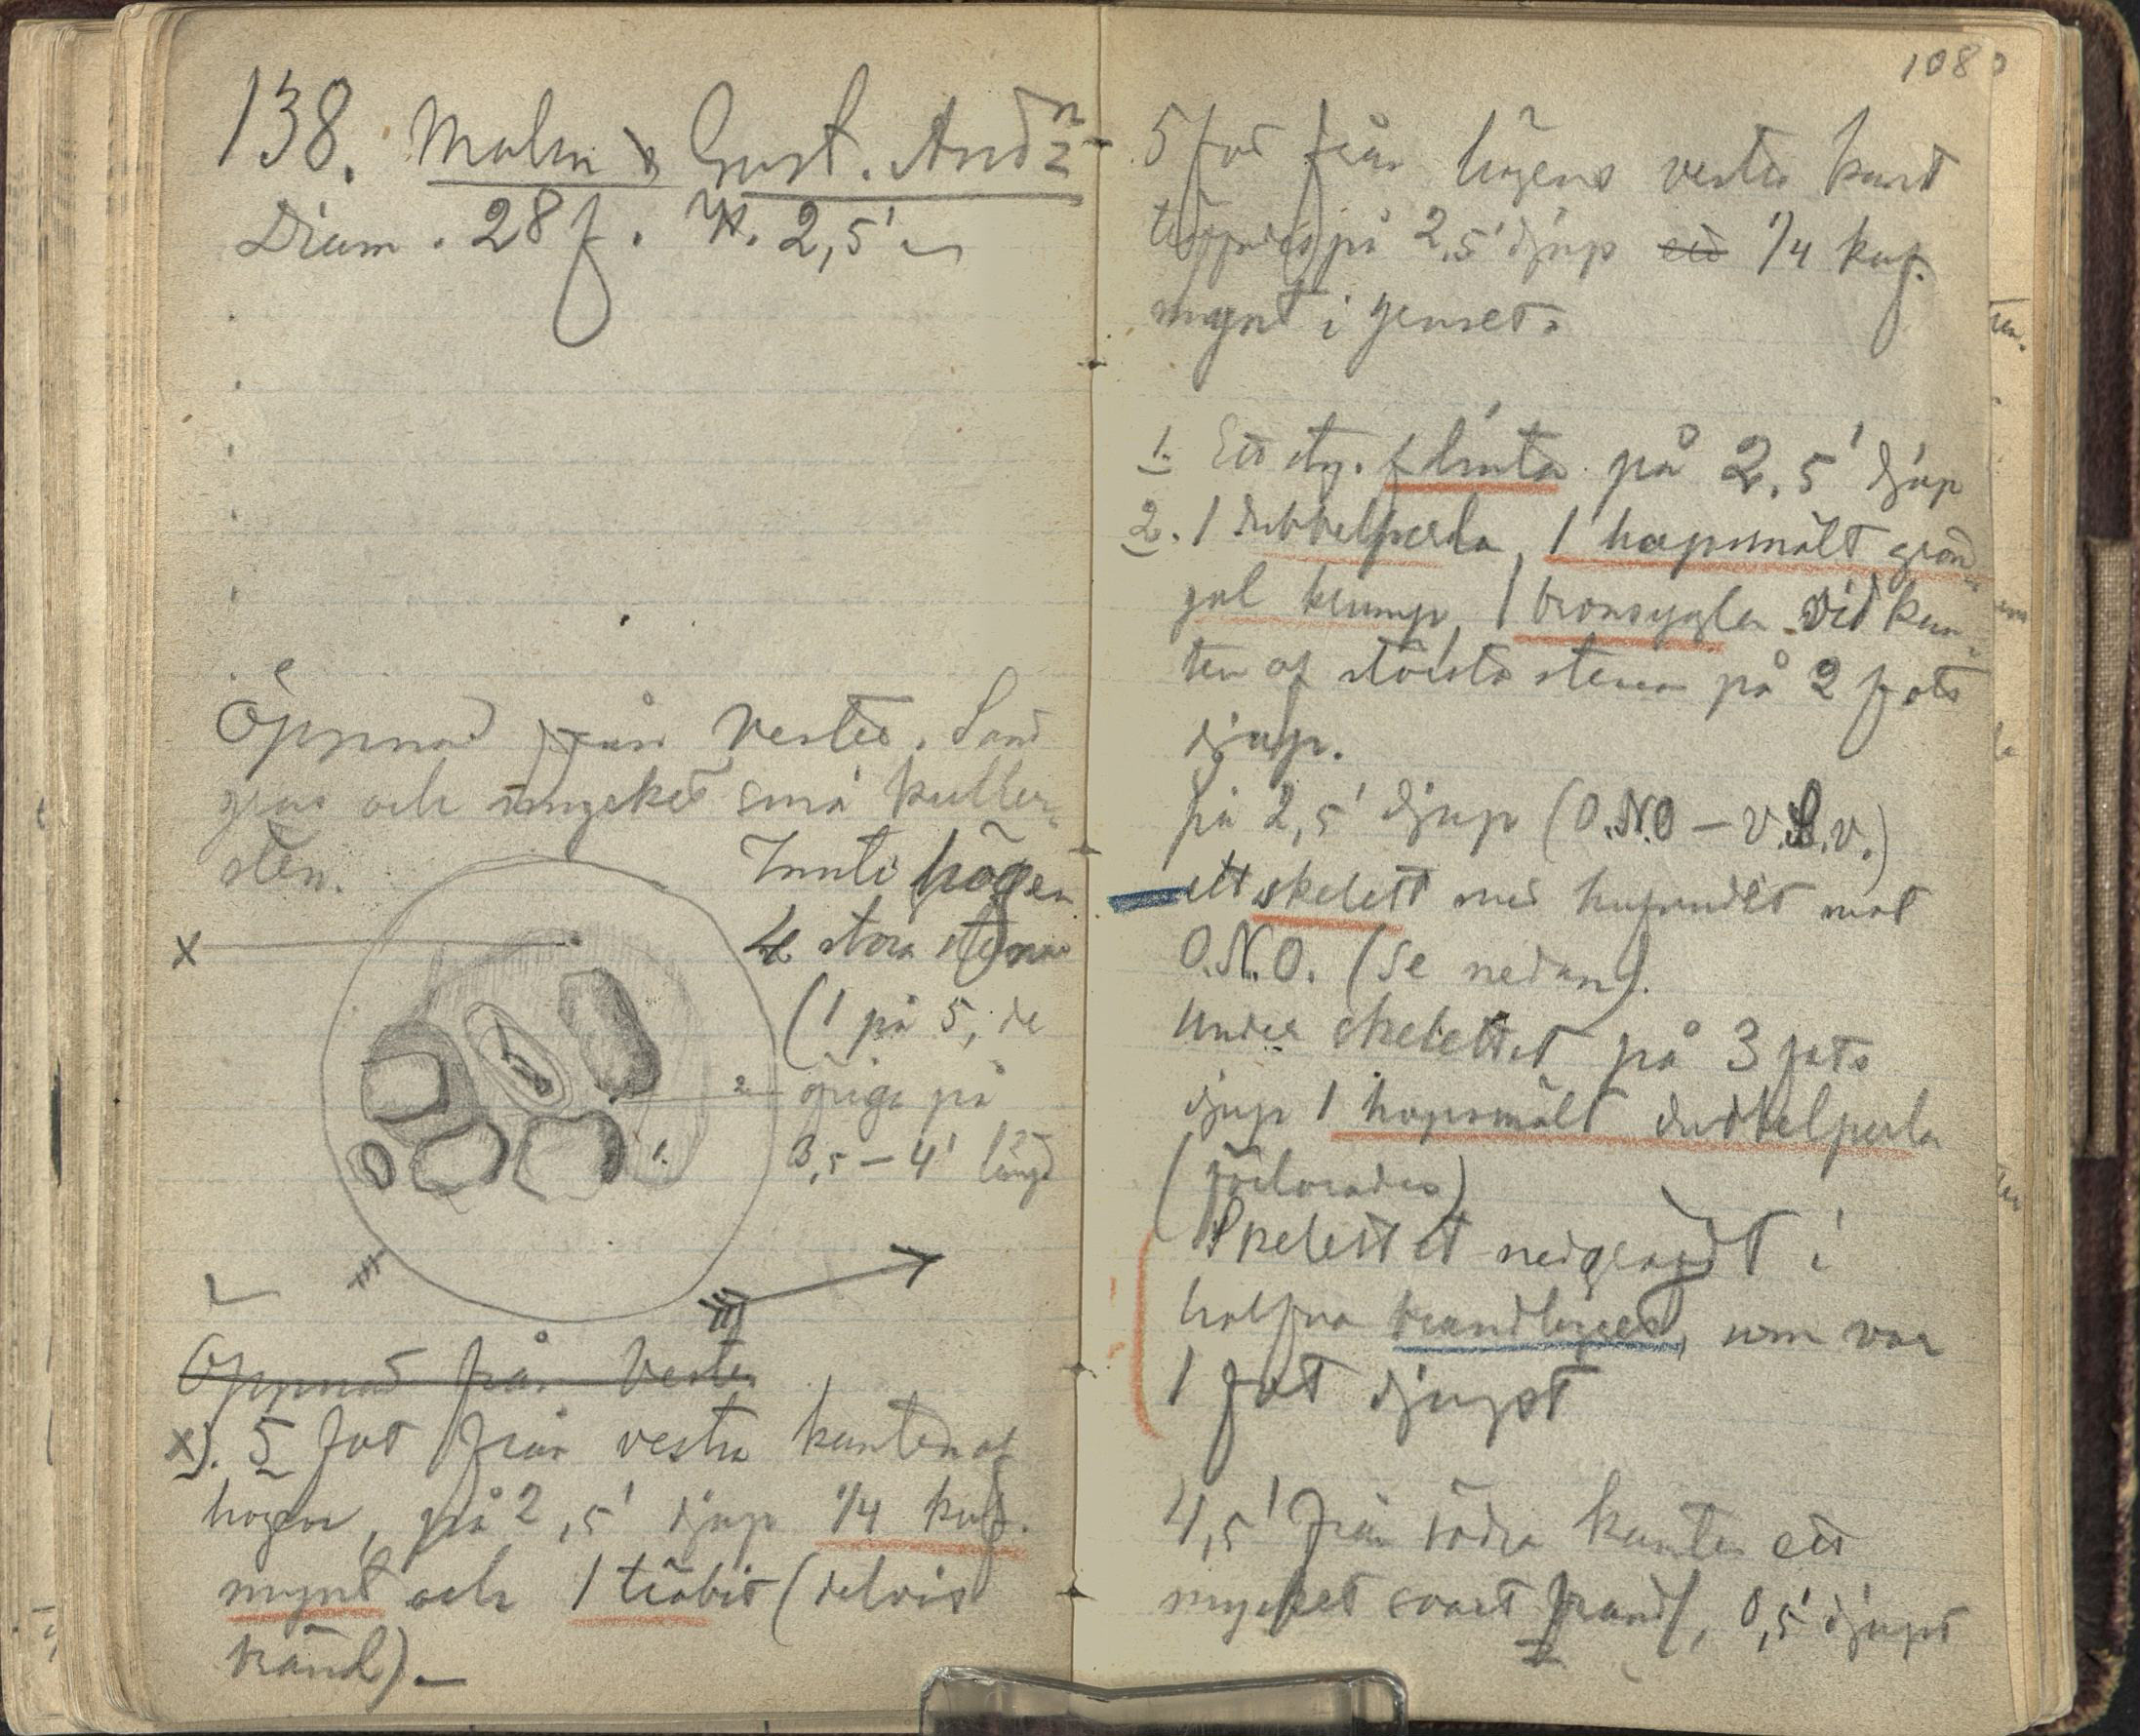 138. Malm & Gust. And:n 2
Diam. 28 f. H. 2,5'
Öppnad från Vester. Sand
grus och mycket små kuller-
sten.
Inuti högen
4 stora stenar
(1 på 5, de
öfriga på
3,5 – 4' längd
x
2.
1.
Öppnad från Vester
x). 5 fot från vestra kanten af
högen, på 2,5' djup 1/4 kuf.
mynt och 1 träbit (delvis
bränd). –
108
5 fot från högens vestra kant
på 2,5' djup ett 1/4 kuf.
mynt i gruset.
1. Ett sty. flinta på 2,5' djup
2. 1 dubbelperla, 1 hopsmält grön-
gul klump, 1 bronsygla vid kan-
ten af största stenen på 2 fots
djup.
På 2,5' djup (O.N.O – V.S.V.)
ett skelett med hufvudet mot
O.N.O. (Se nedan).
Under skelettet på 3 fots
djup 1 hopsmält dubbelperla
(förlorades)
Skelettet nedgräfdt i
halfva brandlagret, som var
1 fot djupt
4,5' från södra kanten ett
mycket svart brandl, 0,5' djupt